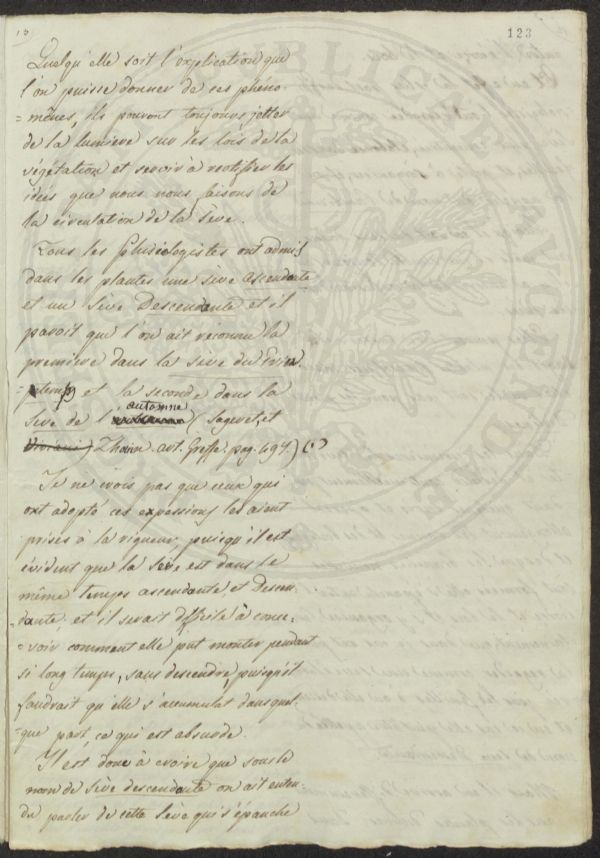 13
123
Quelqu'elle soit l'explication que
l'on puisse donner de ces phéno-
=mènes, ils pouront toujours jetter
de la lumiere sur les lois de la
végétation et servir à rectifier les
idées que nous nous faisons de
la circulation de la Sève.
Tous les Phisiologistes ont admis
dans les plantes une sève ascendante
et une Sève Descendante et il
paroit que l'on ait réconnu la
première dans la sève du Prin
=ptems et la seconde dans la
automne
Seve de l' (Sageret, et
Thoüin art. Greffe. pag. 497.) (1)
Je ne crois pas que ceux qui
ont adopté ces expressions les aient
prises à la rigueur, puisqu'il est
évident que la Sève est dans le
même temps ascendante, et descen-
=dante; et il serait difficile à conce-
=voir comment elle put monter pendant
si long temps, sans descendre puisqu'il
faudrait qu'elle s'accumulat dans quel-
=que part, ce qui est absurde.
Il est donc à croire que sous le
nom de Sève descendante on ait enten-
du parler de cette Sève qui s'épanche